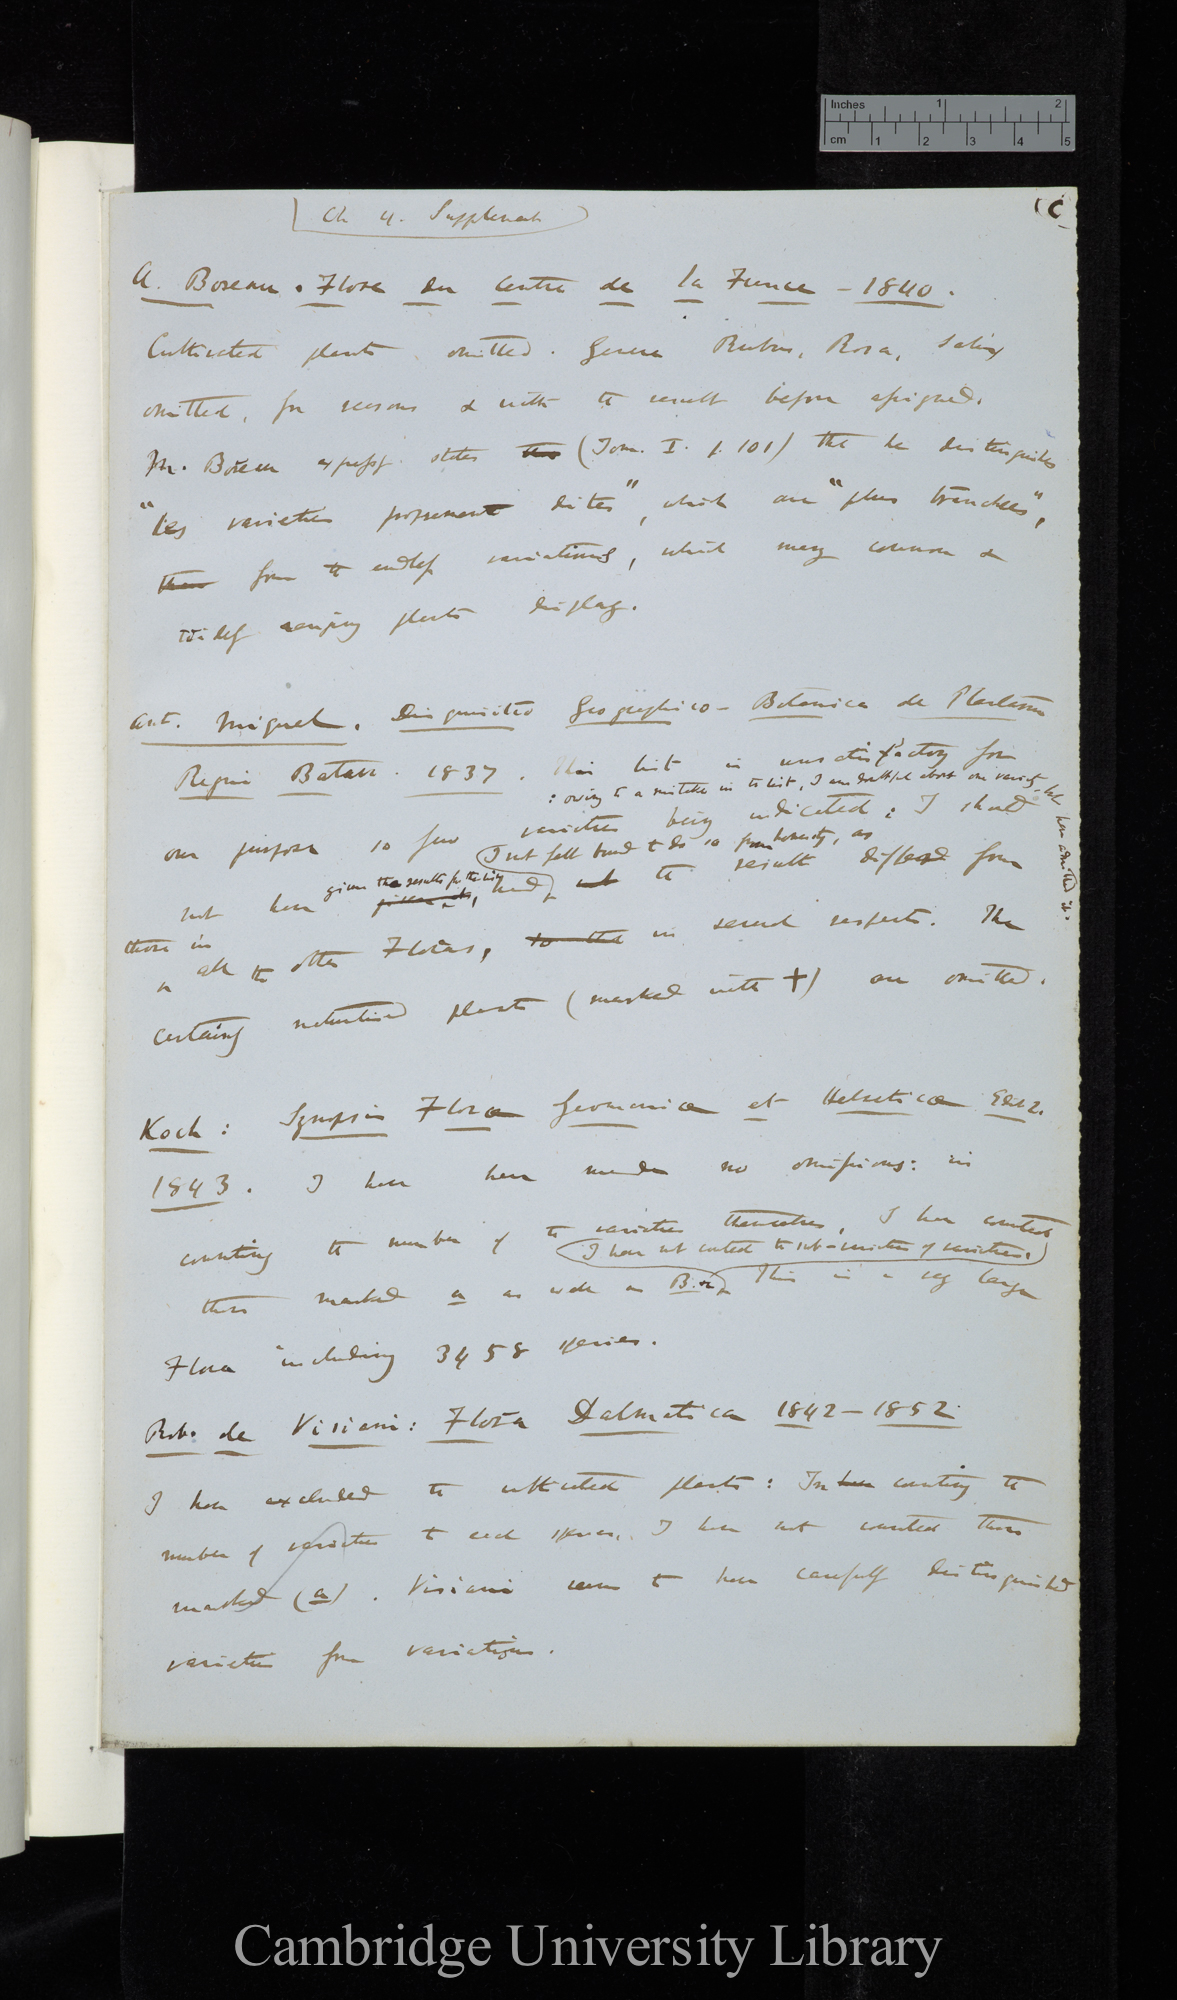 Inches 1 2
cm 1 2 3 4 5
Ch 4. Supplement
(C
A. Boreau. Flore du Centre de la France – 1840.
Cultivated plants omitted. Genera Rubus, Rosa, Salix
omitted, for reasons & with the result before assigned.
Mr. Boreau expressly states (Tom. I. p. 101) that he distinguishes
"les varietes proprement dites", which are "plus tranchees",
them from the endless variations, which many common &
widely ranging plants display.
Ant. Miquel. Disquisitio Geographico-Botanica de Plantarum
Regni Batav. 1837. This list is unsatisfactory for
: owing to a mistake in the list, I am doubtful about one variety, but have admitted it.
our purpose so few varieties being indicated; I should
I not felt bound to do so from honesty, as
not have given the results for the list, had the result differed from
those in
all the other Floras, in several respects. The
certainly naturalised plants (marked with +) are omitted.
Koch: Synopsis Floræ Germanicæ et Helveticæ Edit 2.
1843. I have here made no omissions: in
counting the number of the varieties themselves, I have counted
I have not counted the sub-varieties of varieties.
those marked α as well as B. &c This is a very large
Flora including 3458 species.
Rob. de Visiani: Flora Dalmatica 1842–1852.
I have excluded the cultivated plants: In counting the
number of varieties to each species, I have not counted those
marked (α). Visiani seems to have carefully distinguished
varieties from variations.
Cambridge University Library